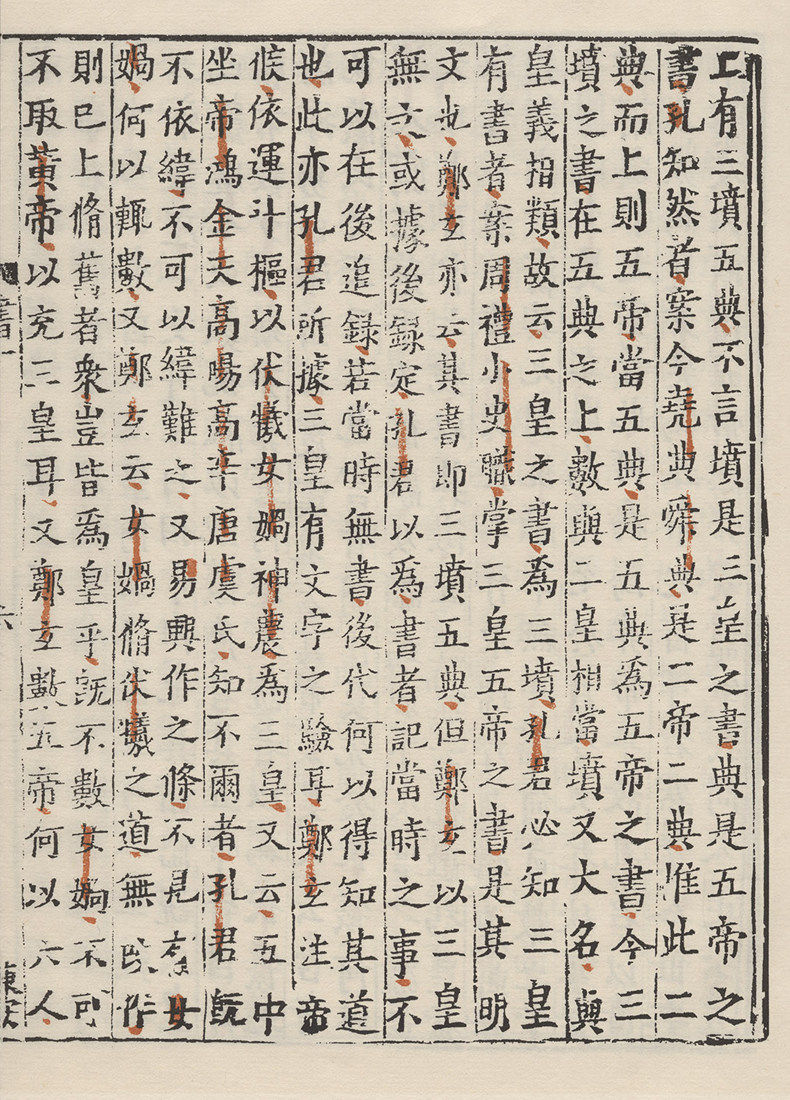 上有三墳五典不言墳是三皇之書典是五帝之
書孔知然者案今堯典舜典是二帝二典推此二
典而上則五帝當五典是五典為五帝之書今三
墳之書在五典之上數與二皇相當墳又大名與
皇義相類故云三皇之書為三墳孔君必知三皇
有書者案周禮小史職掌三皇五帝之書是其明
文也鄭玄亦云其書即三墳五典但鄭玄以三皇
無文或據後録定孔君以為書者記當時之事不
可以在後追録若當時無書後代何以得知其道
也此亦孔君所據三皇有文字之驗耳鄭玄注帝
候依運斗樞以伏犧女媧神農為三皇又云五中
坐帝鴻金天高暘高辛唐虞氏知不爾者孔君既
不依緯不可以緯難之又易興作之條不見有女
媧何以輒數又鄭玄云女媧脩伏犧之道無改作
則已上脩舊者衆豈皆為皇乎既不數女媧不可
不取黃帝以充三皇耳又鄭玄數五帝何以六人
書一
六